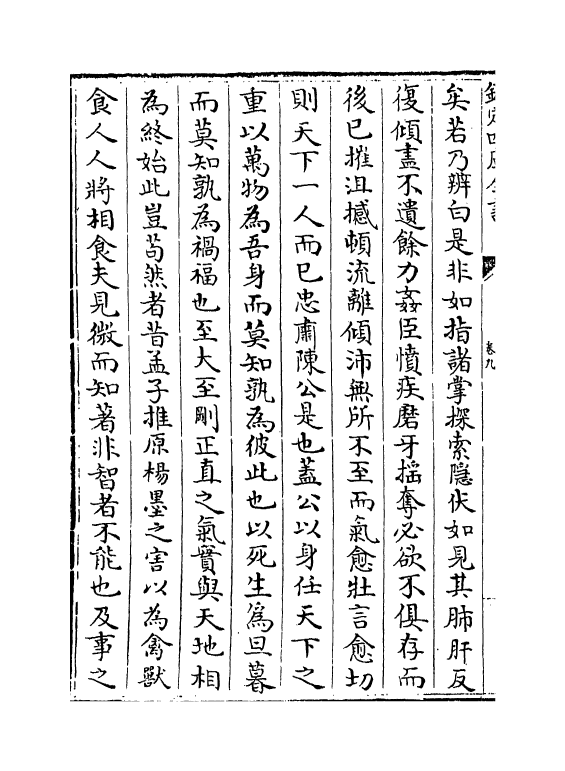 欽定四庫全書
卷九
矣若乃辨白是非如指諸掌探索隱伏如見其肺肝反
復傾盡不遺餘力姦臣憤疾磨牙揺奪必欲不俱存而
後已摧沮撼頓流離傾沛無所不至而氣愈壯言愈切
則天下一人而已忠肅陳公是也蓋公以身任天下之
重以萬物為吾身而莫知孰為彼此也以死生為旦暮
而莫知孰為禍福也至大至剛正直之氣實與天地相
為終始此豈茍然者昔孟子推原楊墨之害以為禽獸
食人人將相食夫見微而知著非智者不能也及事之